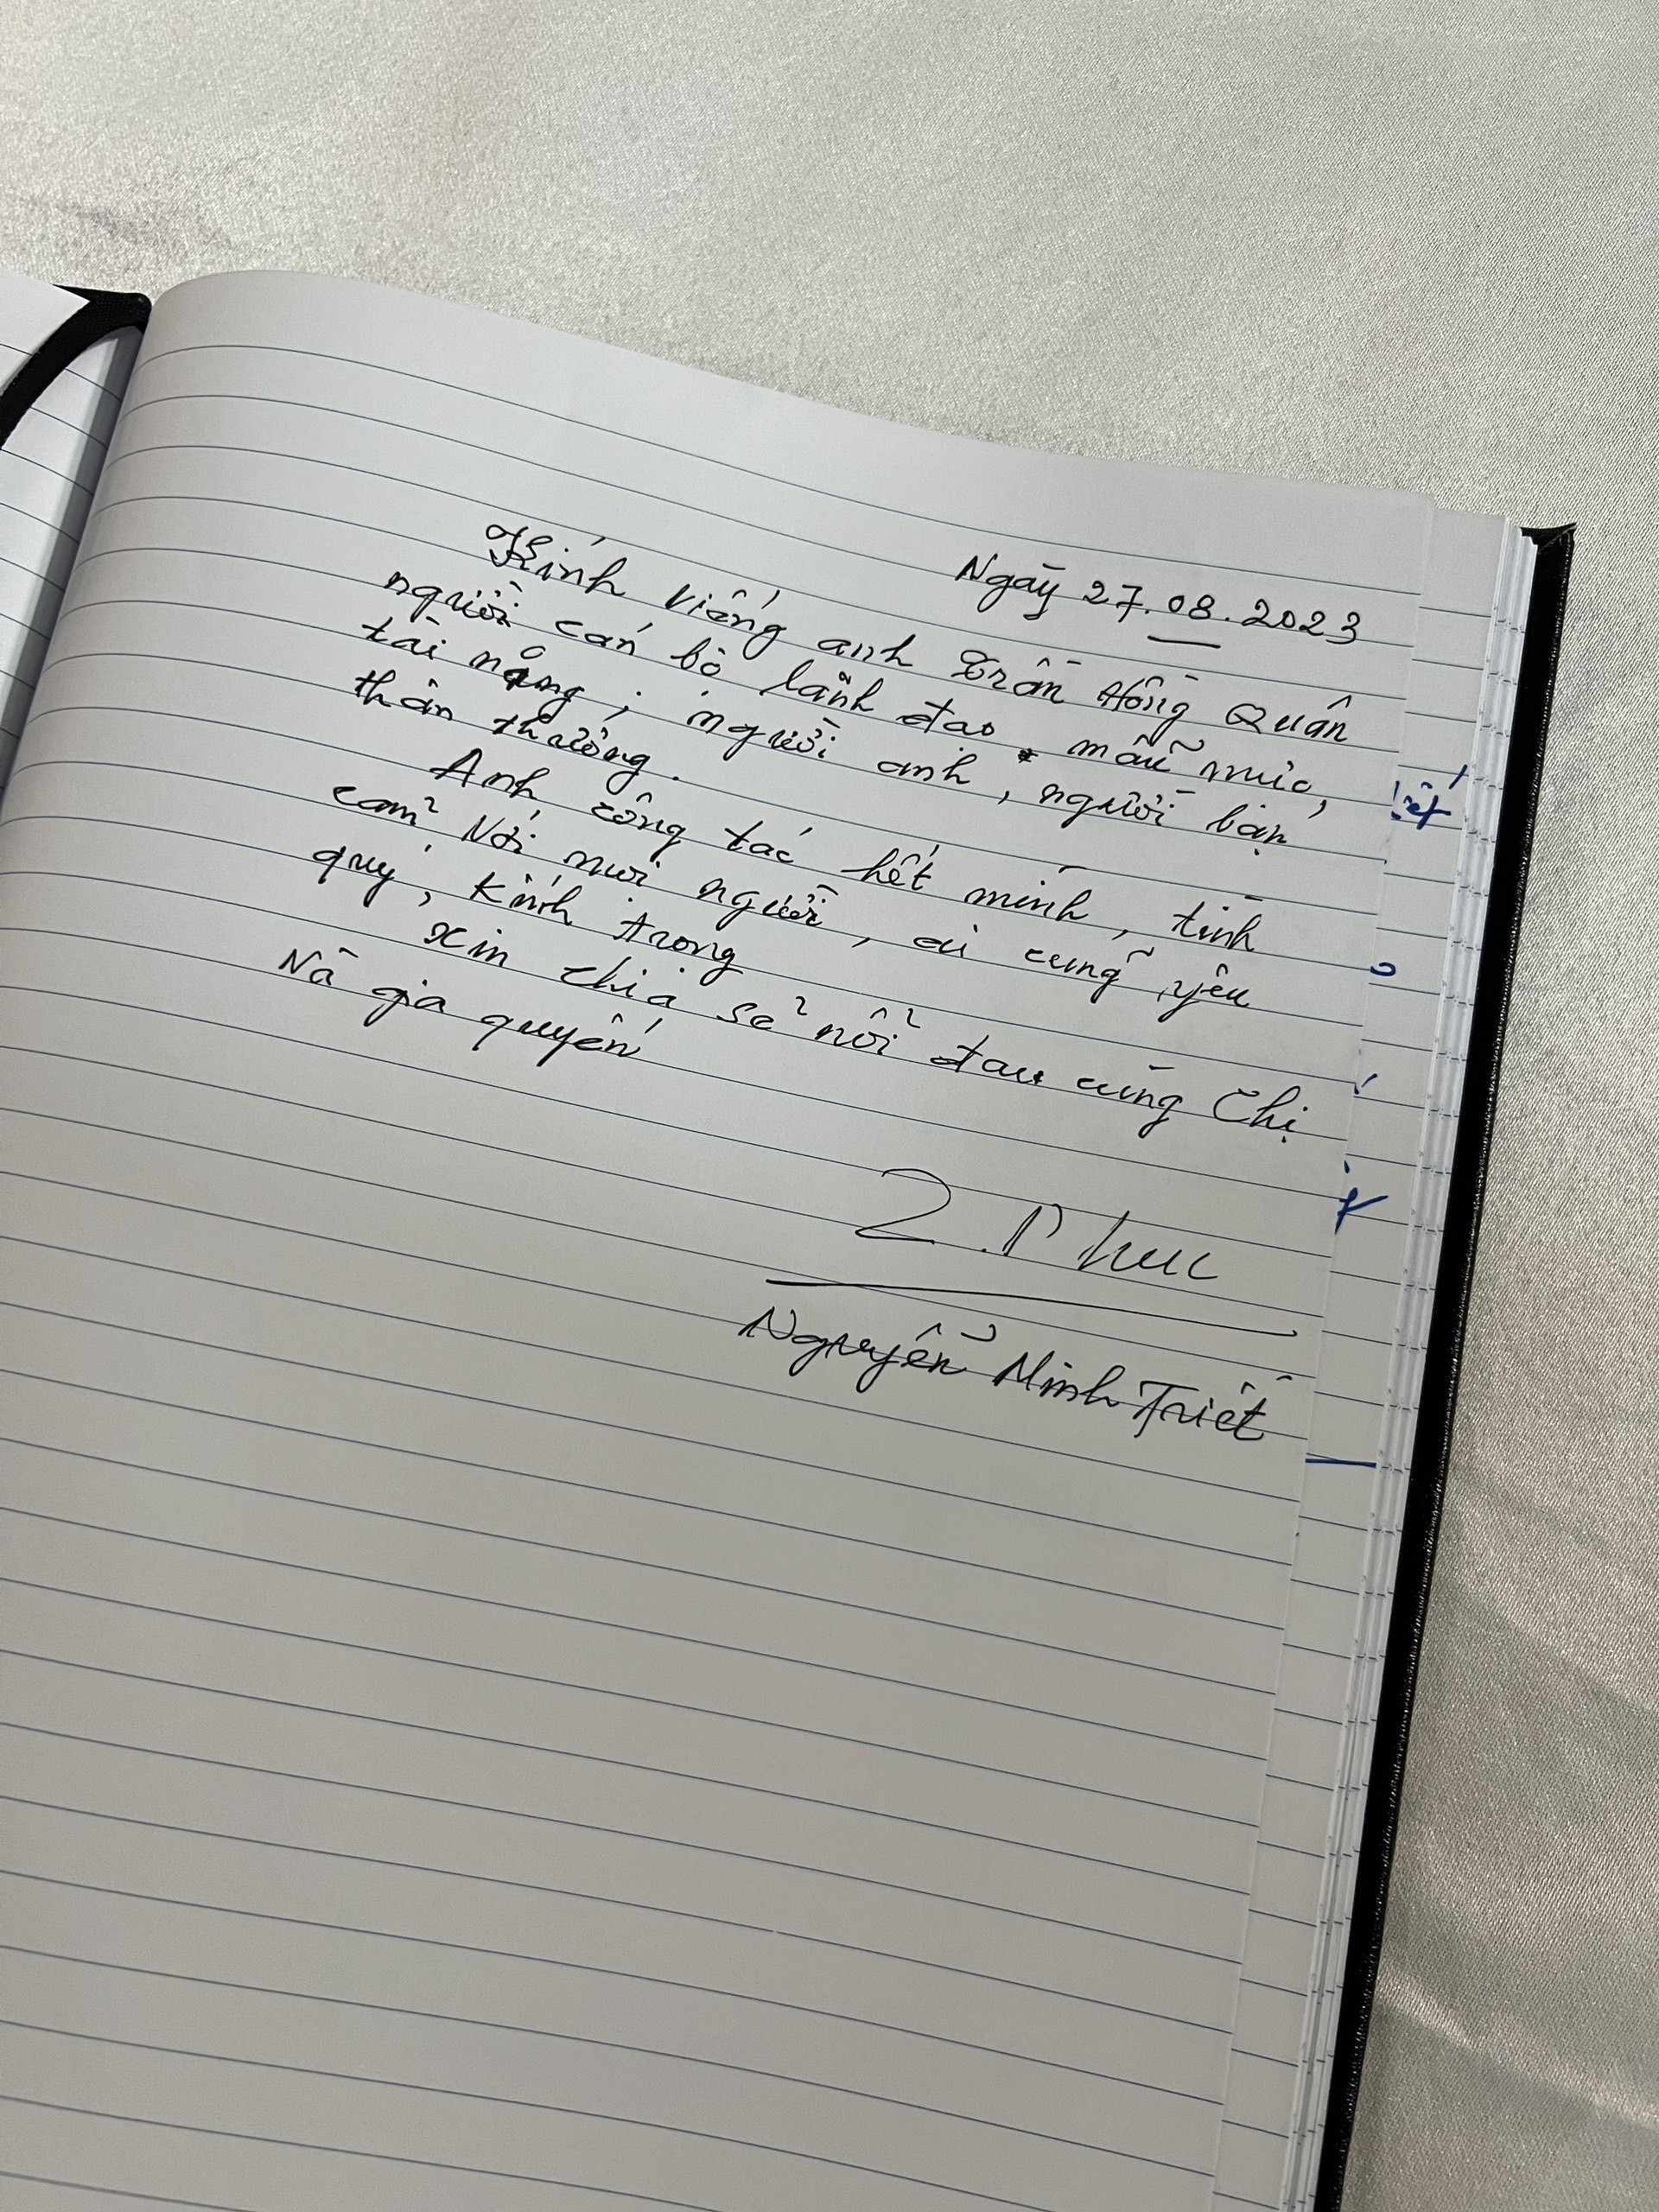 Ngày 27.08.2023
Kính viếng anh Trần Hồng Quân
người cán bộ lãnh đạo mẫu mực,
tài năng; người anh, người bạn
thân thương.
Anh công tác hết mình, tình
cảm với mọi người, ai cũng yêu
quý, kính trọng
xin chia sẻ nỗi đau cùng Chị
và gia quyến
Nguyễn Minh Triết